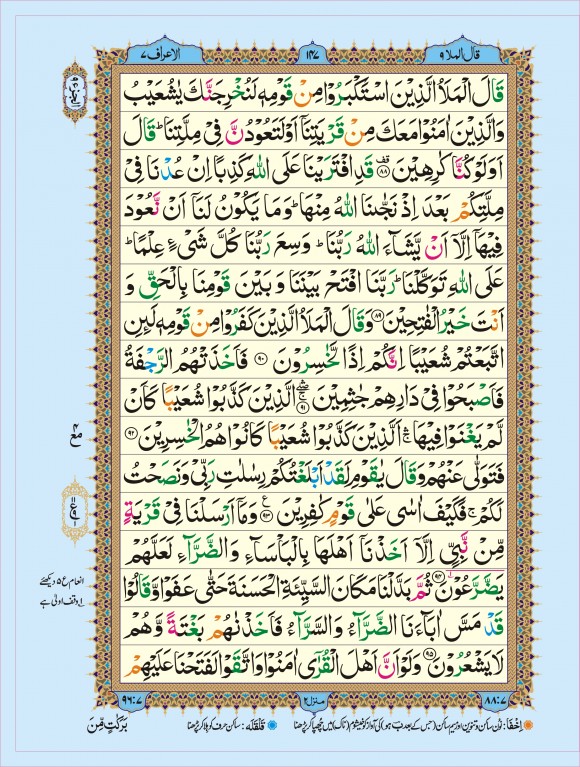 قال الملا ٩
١٤٧
الاعراف ٧
قَالَ الْمَلَاُ الَّذِيْنَ اسْتَكْبَرُوْا مِنْ قَوْمِهٖ لَنُخْرِجَنَّكَ يٰشُعَيْبُ
وَالَّذِيْنَ اٰمَنُوْا مَعَكَ مِنْ قَرْيَتِنَاۤ اَوْ لَتَعُوْدُنَّ فِيْ مِلَّتِنَا ؕ قَالَ
اَوَلَوْ كُنَّا كٰرِهِيْنَ ۟ ﴿۸۸﴾ قَدِ افْتَرَيْنَا عَلَى اللّٰهِ كَذِبًا اِنْ عُدْنَا فِيْ
مِلَّتِكُمْ بَعْدَ اِذْ نَجّٰىنَا اللّٰهُ مِنْهَا ؕ وَمَا يَكُوْنُ لَنَاۤ اَنْ نَّعُوْدَ
فِيْهَاۤ اِلَّاۤ اَنْ يَّشَآءَ اللّٰهُ رَبُّنَا ؕ وَسِعَ رَبُّنَا كُلَّ شَيْءٍ عِلْمًا ؕ
عَلَى اللّٰهِ تَوَكَّلْنَا ؕ رَبَّنَا افْتَحْ بَيْنَنَا وَبَيْنَ قَوْمِنَا بِالْحَقِّ وَ
اَنْتَ خَيْرُ الْفٰتِحِيْنَ ﴿۸۹﴾ وَقَالَ الْمَلَاُ الَّذِيْنَ كَفَرُوْا مِنْ قَوْمِهٖ لَىِٕنِ
اتَّبَعْتُمْ شُعَيْبًا اِنَّكُمْ اِذًا لَّخٰسِرُوْنَ ﴿۹۰﴾ فَاَخَذَتْهُمُ الرَّجْفَةُ
فَاَصْبَحُوْا فِيْ دَارِهِمْ جٰثِمِيْنَ ﴿۹۱﴾ الَّذِيْنَ كَذَّبُوْا شُعَيْبًا كَاَنْ
لَّمْ يَغْنَوْا فِيْهَا ۛۚ اَلَّذِيْنَ كَذَّبُوْا شُعَيْبًا كَانُوْا هُمُ الْخٰسِرِيْنَ ﴿۹۲﴾
فَتَوَلّٰى عَنْهُمْ وَقَالَ يٰقَوْمِ لَقَدْ اَبْلَغْتُكُمْ رِسٰلٰتِ رَبِّيْ وَنَصَحْتُ
لَكُمْ ۚ فَكَيْفَ اٰسٰى عَلٰى قَوْمٍ كٰفِرِيْنَ ﴿۹۳﴾ وَمَاۤ اَرْسَلْنَا فِيْ قَرْيَةٍ
مِّنْ نَّبِيٍّ اِلَّاۤ اَخَذْنَاۤ اَهْلَهَا بِالْبَاْسَآءِ وَالضَّرَّآءِ لَعَلَّهُمْ
يَضَّرَّعُوْنَ ﴿۹۴﴾ ثُمَّ بَدَّلْنَا مَكَانَ السَّيِّئَةِ الْحَسَنَةَ حَتّٰى عَفَوْا وَّقَالُوْا
قَدْ مَسَّ اٰبَآءَنَا الضَّرَّآءُ وَالسَّرَّآءُ فَاَخَذْنٰهُمْ بَغْتَةً وَّهُمْ
لَا يَشْعُرُوْنَ ﴿۹۵﴾ وَلَوْ اَنَّ اَهْلَ الْقُرٰٓى اٰمَنُوْا وَاتَّقَوْا لَفَتَحْنَا عَلَيْهِمْ
مع ۴
ع
انعام ع ۵ دیکھئے
وقف اولٰی ہے
٨٨:٧
منزل ٢
٩٦:٧
اِخفا: نون ساکن و تنوین اور میم ساکن (جس کے بعد ب ہو) کی آواز کو خیشوم (ناک) میں چھپا کر پڑھنا
قلقلہ: ساکن حرف کو ہلا کر پڑھنا
بَرَكٰتٍ مِّنَ